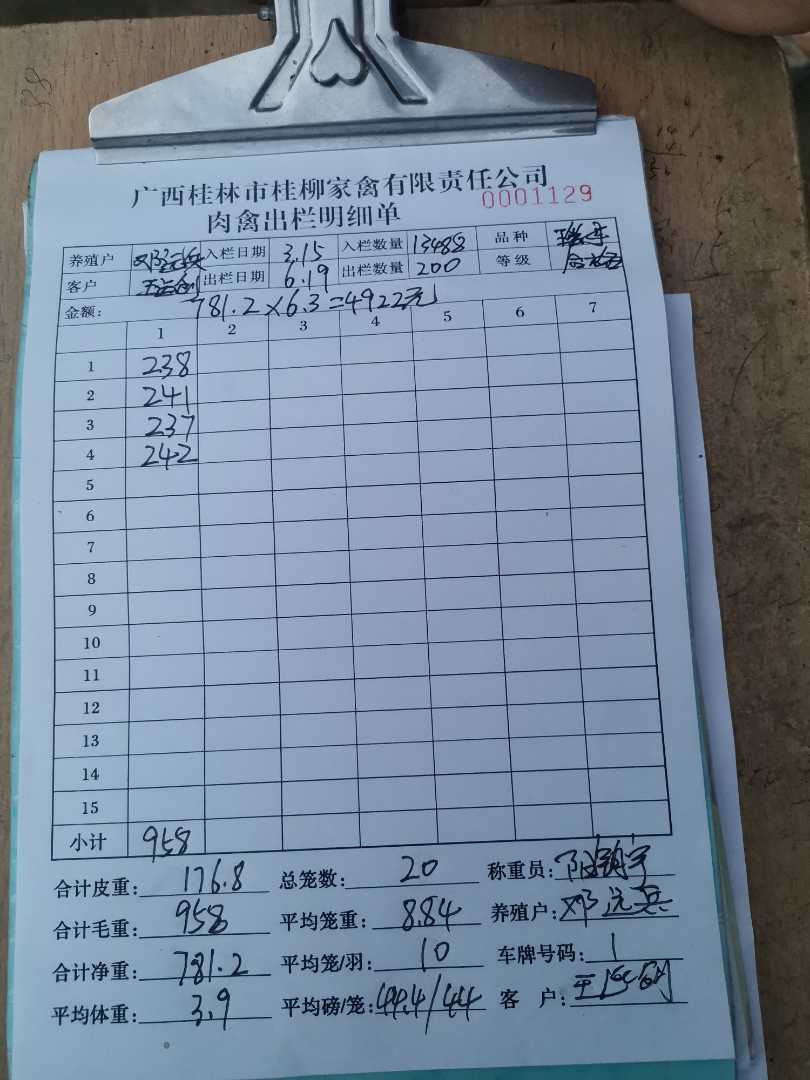 广西桂林市桂柳家禽有限责任公司
肉禽出栏明细单 0001129
养殖户 邓远兵 入栏日期 3.15 入栏数量 13488 品种
客户 出栏日期 6.19 出栏数量 200 等级
金额: 781.2×6.3=4922元
1 2 3 4 5 6 7
1 238
2 241
3 237
4 242
5
6
7
8
9
10
11
12
13
14
15
小计 958
合计皮重: 176.8 总笼数: 20 称重员:
合计毛重: 958 平均笼重: 8.84 养殖户: 邓远兵
合计净重: 781.2 平均笼/羽: 10 车牌号码: 1
平均体重: 3.9 平均磅/笼: 客 户: